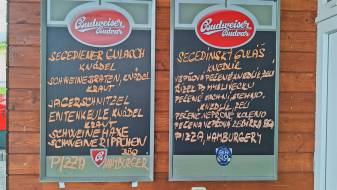 Budweiser
Budvar
SEGEDIENER GULASCH
KNÖDEL
SCHWEINEBRATEN, KNÖDEL
KRAUT
JÄGERSCHNITZEL
ENTENKEULE KNÖDEL
KRAUT
SCHWEINE HAXE
SCHWEINE RIPPCHEN
BBQ
PIZZA HAMBURGER
Budweiser
Budvar
SEGEDÍNSKÝ GULÁŠ
KNEDLÍK
VEPŘOVÁ PEČENĚ KNEDLÍK, ZELÍ
ŘÍZEK PO MYSLIVECKU
PEČENÉ KACHNÍ STEHNO,
KNEDLÍK, ZELÍ
PEČENÉ VEPŘOVÉ KOLENO
PEČENÁ VEPŘOVÁ ŽEBÍRKA BBQ
PIZZA, HAMBURGERY